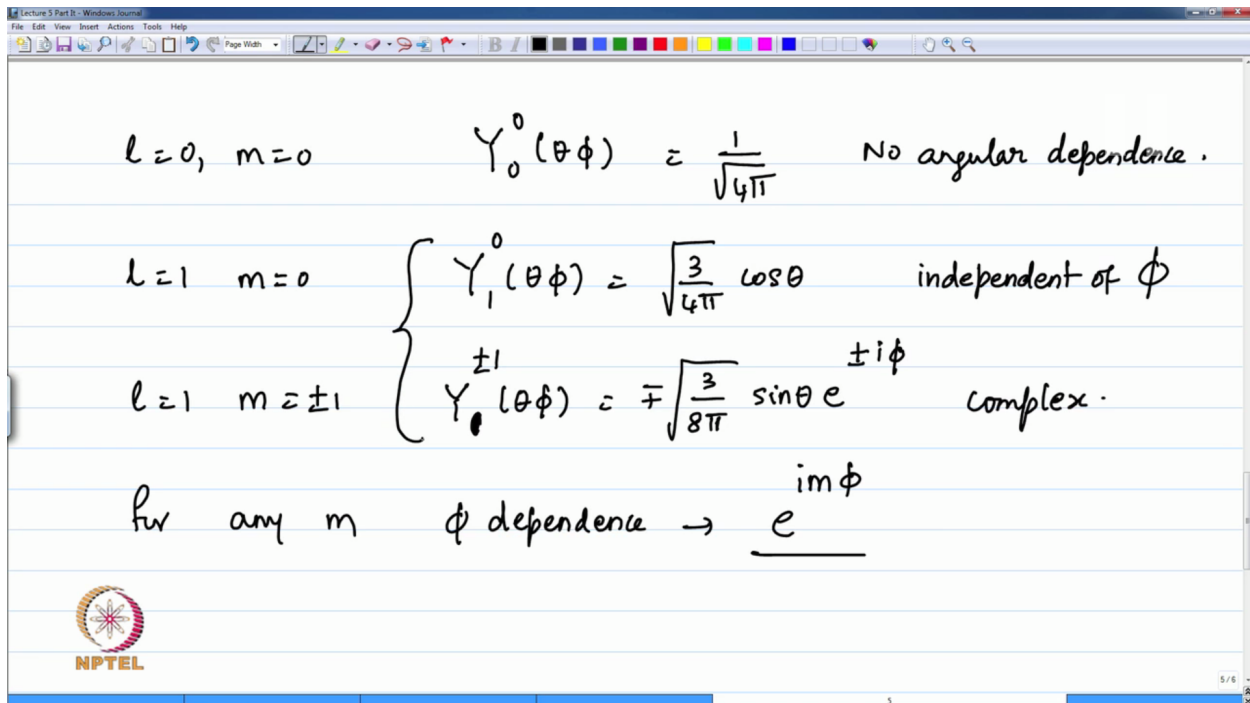 Lecture 5 Part It - Windows Journal
File Edit View Insert Actions Tools Help
Page Width B I
l=0, m=0 Y₀⁰(θϕ) = 1/√4π No angular dependence.
l=1 m=0 Y₁⁰(θϕ) = √(3/4π) cosθ independent of ϕ
l=1 m=±1 Y₁^±1(θϕ) = ∓√(3/8π) sinθ e^±iϕ complex.
for any m ϕ dependence → e^imϕ
NPTEL
5/6
5